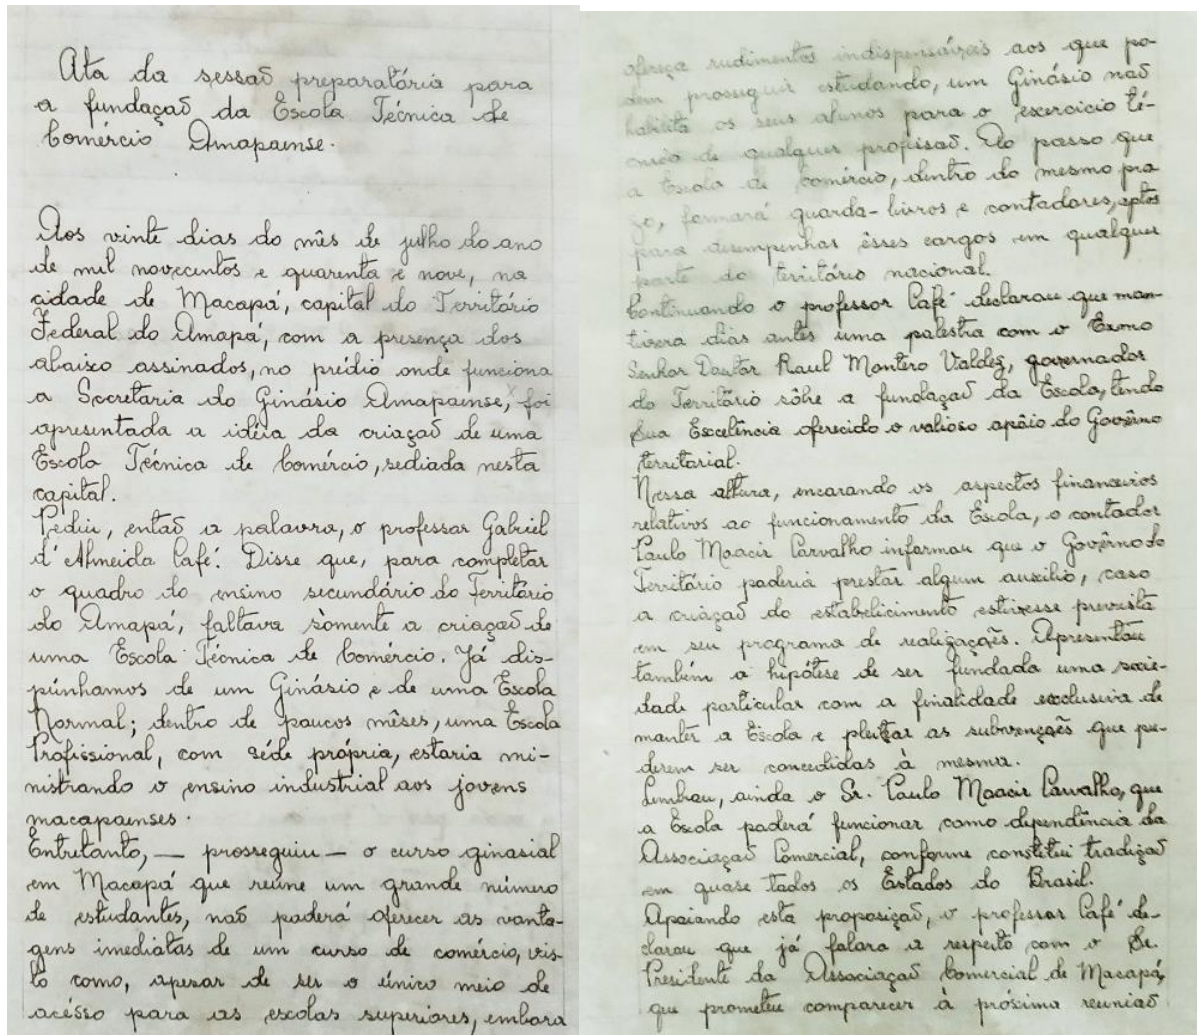 Ata da sessaõ preparatória para
a fundaçaõ da Escola Técnica de
Comércio Amapaense.
Aos vinte dias do mês de julho do ano
de mil novecentos e quarenta e nove, na
cidade de Macapá, capital do Território
Federal do Amapá, com a presença dos
abaixo assinados, no prédio onde funciona
a Secretaria do Ginásio Amapaense, foi
apresentada a idéia da criaçaõ de uma
Escola Técnica de Comércio, sediada nesta
capital.
Pediu, entaõ a palavra, o professor Gabriel
d'Almeida Café. Disse que, para completar
o quadro do ensino secundário do Território
do Amapá, faltava sòmente a criaçaõ de
uma Escola Técnica de Comércio. Já dis-
púnhamos de um Ginásio e de uma Escola
Normal; dentro de poucos mêses, uma Escola
Profissional, com séde própria, estaria mi-
nistrando o ensino industrial aos jovens
macapaenses.
Entretanto, — prosseguiu — o curso ginasial
em Macapá que reúne um grande número
de estudantes, naõ poderá oferecer as vanta-
gens imediatas de um curso de comércio, vis-
to como, apezar de ser o único meio de
acésso para as escolas superiores, embora
ofereça rudimentos indispensáveis aos que po-
dem prosseguir estudando, um Ginásio naõ
habilita os seus alunos para o exercicio té-
cnico de qualquer profisaõ. Ao passo que
a Escola de Comércio, dentro do mesmo pra
zo, formará guarda-livros e contadores, aptos
para desempenhar êsses cargos em qualquer
parte do território nacional.
Continuando o professor Café declarou que man-
tivera dias antes uma palestra com o Exmo
Senhor Doutor Raul Montero Valdez, governador
do Território sôbre a fundaçaõ da Escola, tendo
Sua Excelência oferecido o valioso apôio do Govêrno
territorial.
Nessa altura, encarando os aspectos financeiros
relativos ao funcionamento da Escola, o contador
Paulo Moacir Carvalho informou que o Govêrno do
Território poderia prestar algum auxílio, caso
a criaçaõ do estabelicimento estivesse prevista
em seu programa de realizações. Apresentou
também a hipótese de ser fundada uma socie-
dade particular com a finalidade exclusiva de
manter a Escola e pleitear as subvenções que pu-
derem ser concedidas à mesma.
Lembrou, ainda o Sr. Paulo Moacir Carvalho, que
a Escola poderá funcionar como dependência da
Associaçaõ Comercial, conforme constitui tradiçaõ
em quase todos os Estados do Brasil.
Apoiando esta proposiçaõ, o professor Café de-
clarou que já falara a respeito com o Sr.
Presidente da Associaçaõ Comercial de Macapá,
que prometeu comparecer à próxima reuniaõ